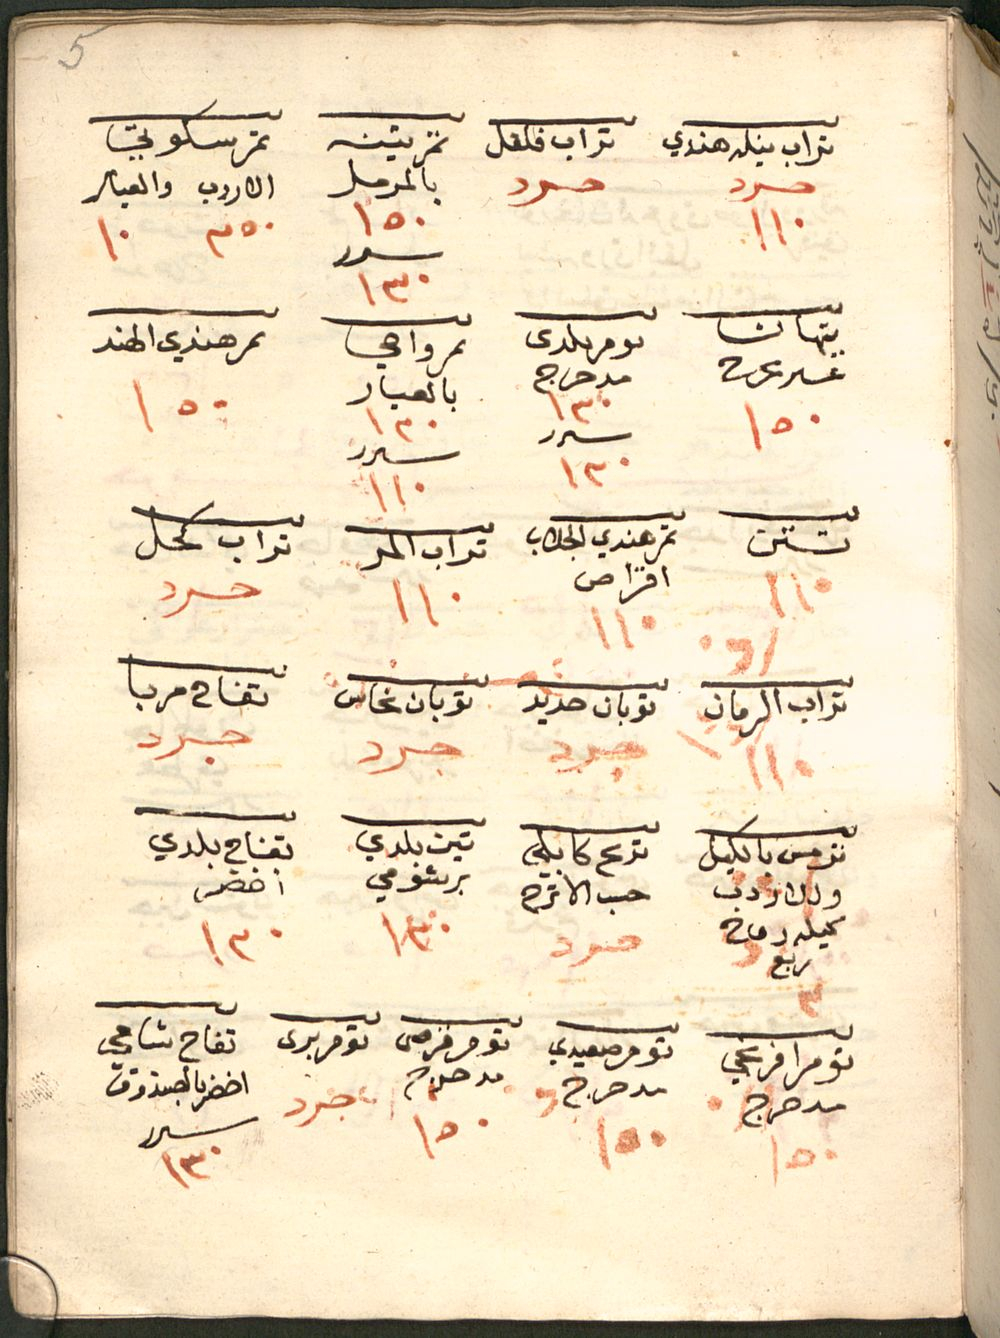 5
تراب نيله هندي
جرد
١١٠
تراب فلفل
جرد
تمر بتينه
بالمرسل
١٥٠
سرر
١٣٠
تمر سكوتي
الاردب والعيار
٣٥٠ ١٠
١٥٠
توم بلدى
مدحرج
١٣٠
سرر
١٣٠
تمر واحي
بالعيار
١٣٠
سرر
١١٠
تمر هندي الهند
١٥٠
تتن
١١٠
تمر هندي الجلاب
اقراص
١١٠
تراب المر
١١٠
تراب كحل
جرد
تراب الرمان
١١٠
توبان حديد
جرد
توبان نحاس
جرد
تفاح مربا
جرد
ترمس بالكيل
ربع
٣
حب الاترج
جرد
تين بلدي
برشومي
١٣٠
تفاح بلدي
اخضر
١٣٠
توم افرنجي
مدحرج
١٥٠
توم صعيدي
مدحرج
١٥٠
توم قرص
مدحرج
١٥٠
توم برى
جرد
تفاح شامي
اخضر بالصندوق
سرر
١٣٠